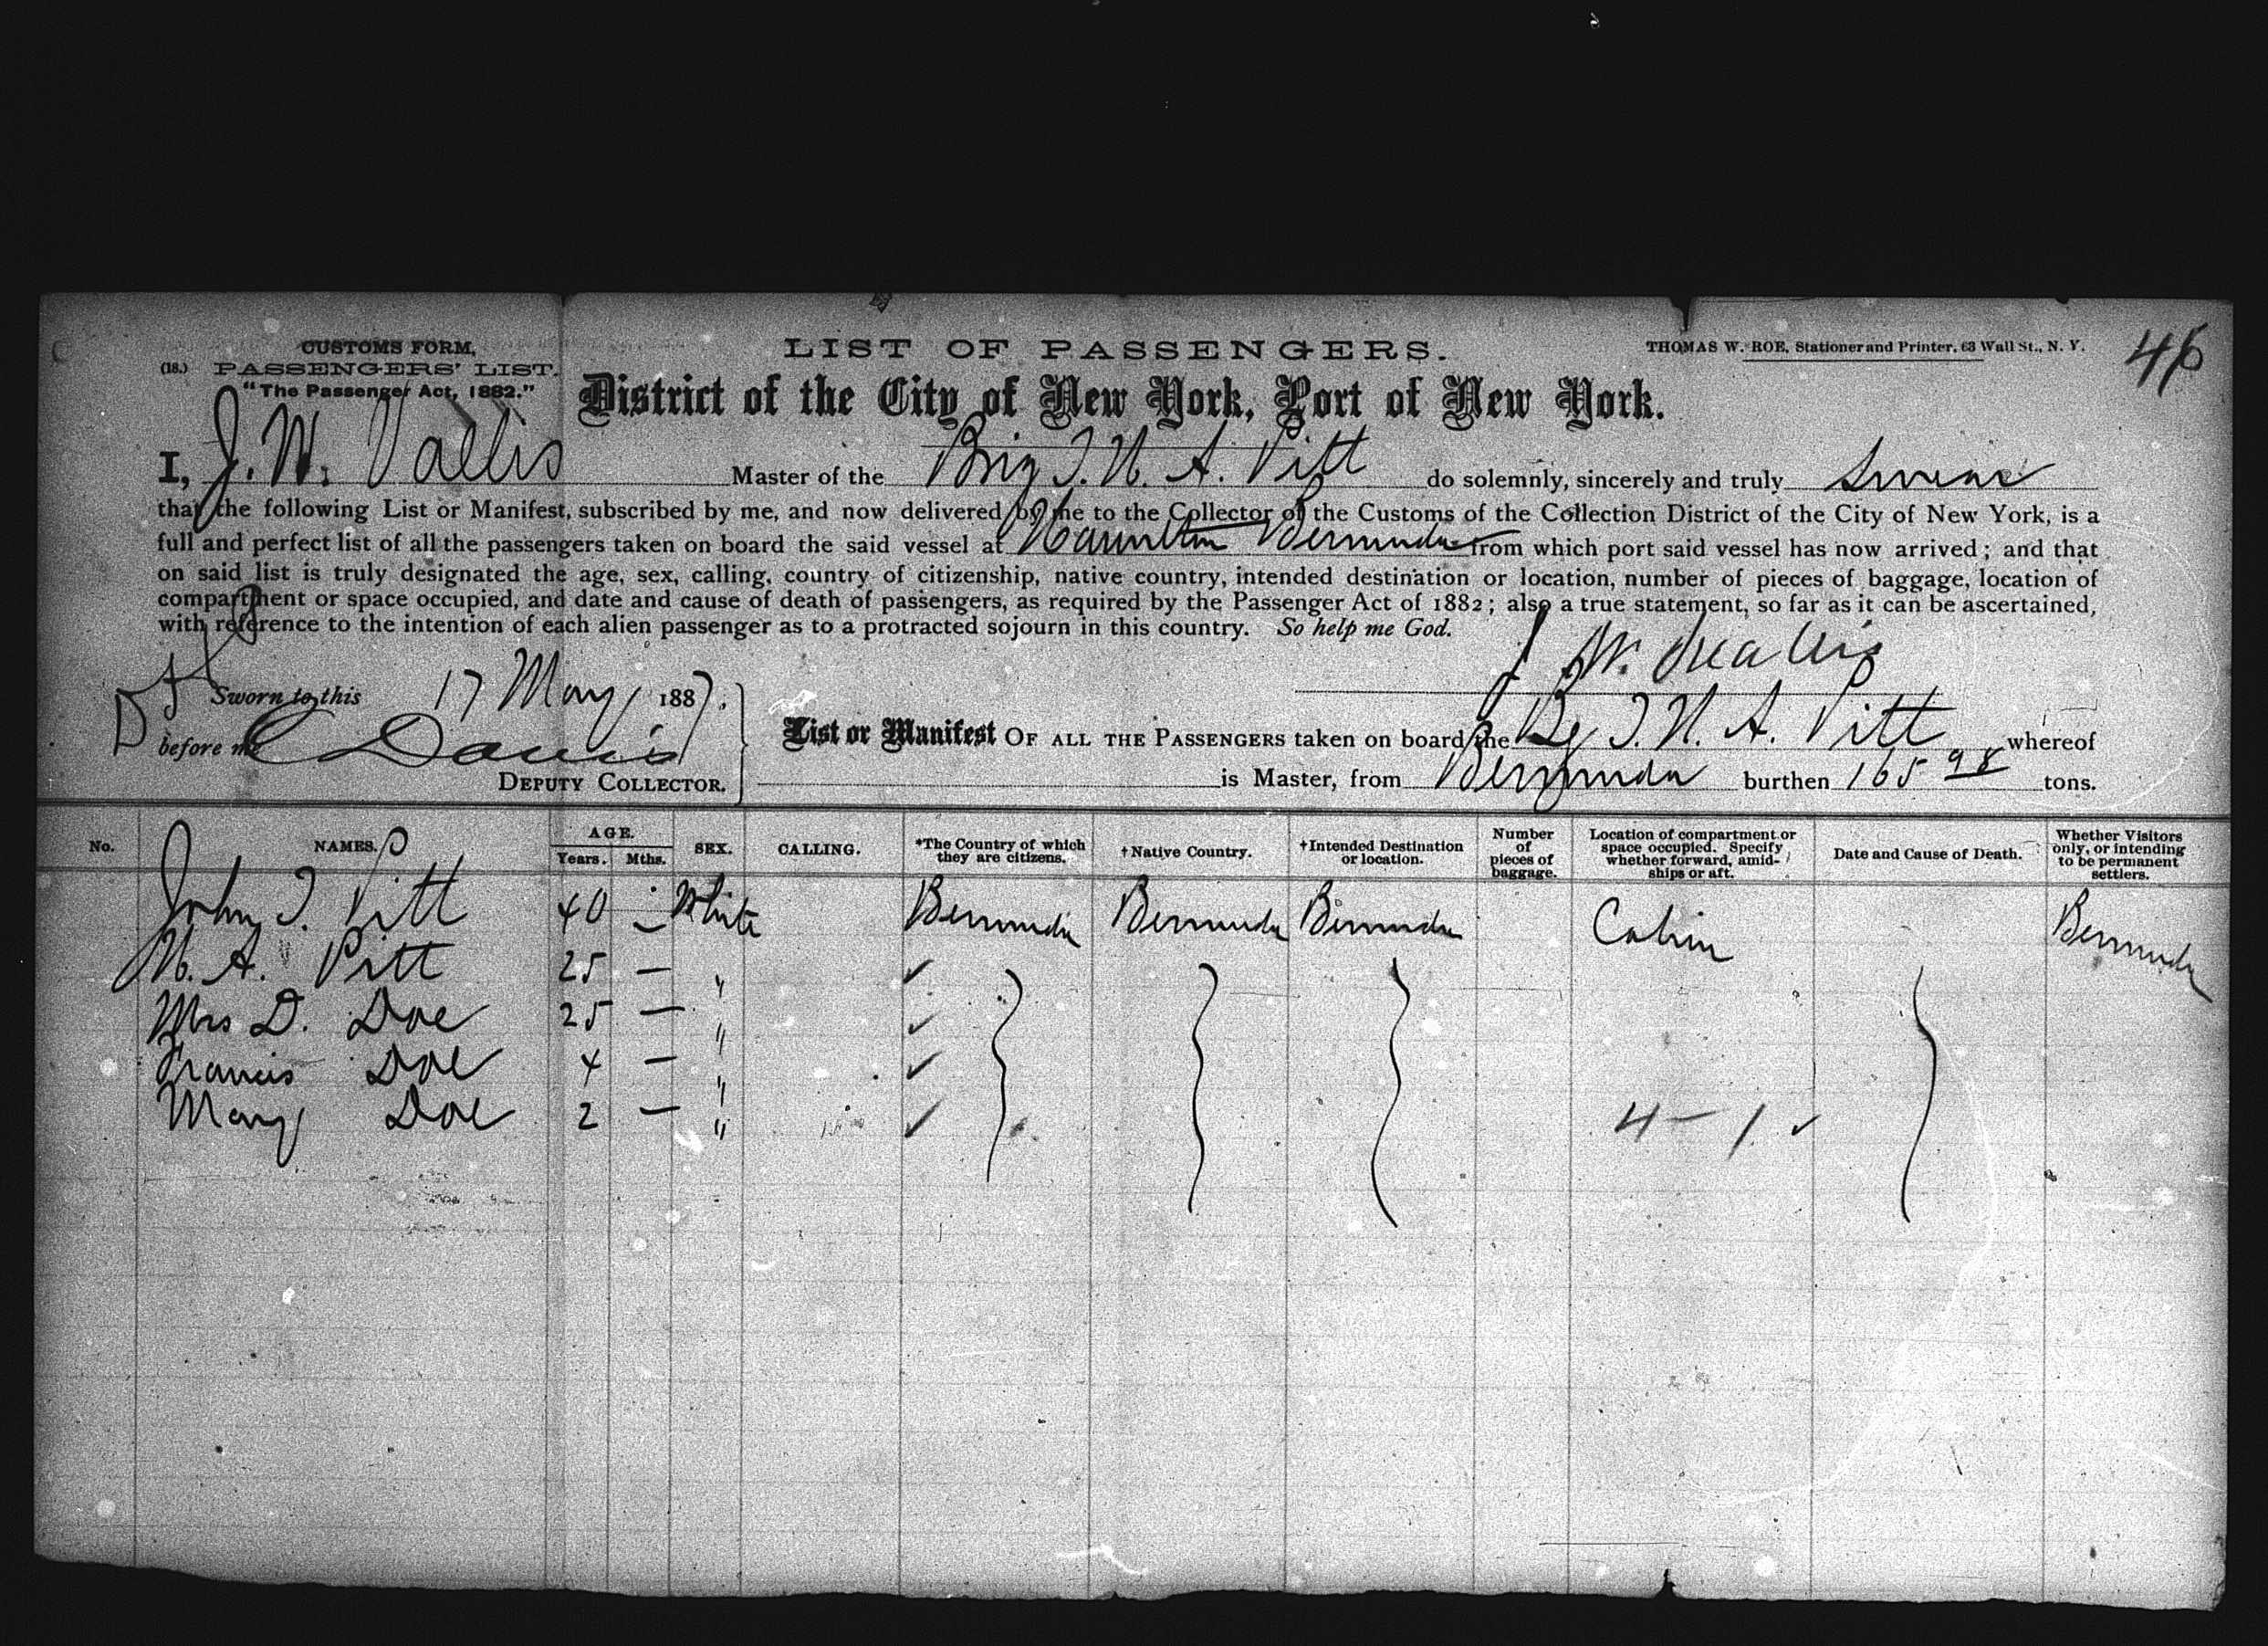 CUSTOMS FORM.
(18.) PASSENGERS' LIST.
"The Passenger Act, 1882."
LIST OF PASSENGERS.
THOMAS W. ROE, Stationer and Printer, 63 Wall St., N. Y.
District of the City of New York, Port of New York.
I, J. W. Vallis Master of the Brig T. H. A. Pitt do solemnly, sincerely and truly swear
that the following List or Manifest, subscribed by me, and now delivered by me to the Collector of the Customs of the Collection District of the City of New York, is a
full and perfect list of all the passengers taken on board the said vessel at Hamilton Bermuda from which port said vessel has now arrived; and that
on said list is truly designated the age, sex, calling, country of citizenship, native country, intended destination or location, number of pieces of baggage, location of
compartment or space occupied, and date and cause of death of passengers, as required by the Passenger Act of 1882; also a true statement, so far as it can be ascertained,
with reference to the intention of each alien passenger as to a protracted sojourn in this country. So help me God.
Sworn to this 17 May 1887.
before me Davis
DEPUTY COLLECTOR.
List or Manifest OF ALL THE PASSENGERS taken on board the Bg T. H. A. Pitt whereof
is Master, from Bermuda burthen 165 98 tons.
No. NAMES. AGE. Years. Mths. SEX. CALLING. *The Country of which they are citizens. †Native Country. †Intended Destination or location. Number of pieces of baggage. Location of compartment or space occupied. Specify whether forward, amidships or aft. Date and Cause of Death. Whether Visitors only, or intending to be permanent settlers.
John T. Pitt 40 - White Bermuda Bermuda Bermuda Cabin Bermuda
H. A. Pitt 25 — "
Mrs D. Doe 25 — "
Francis Doe 4 — "
Mary Doe 2 — " 4 — 1